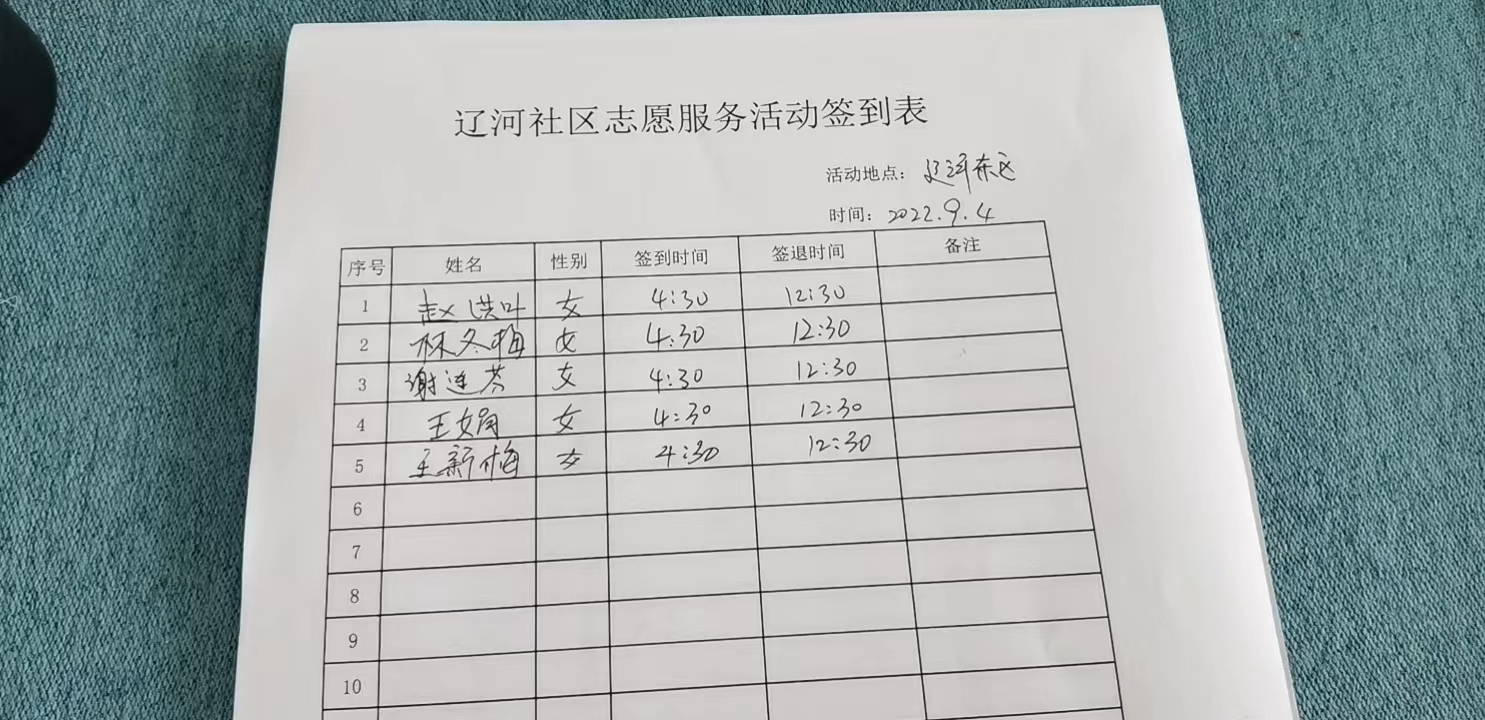 辽河社区志愿服务活动签到表
活动地点：辽河东区
时间：2022.9.4
序号 姓名 性别 签到时间 签退时间 备注
1 赵洪叶 女 4:30 12:30
2 林冬梅 女 4:30 12:30
3 谢连芬 女 4:30 12:30
4 王文闯 女 4:30 12:30
5 王新梅 女 4:30 12:30
6
7
8
9
10